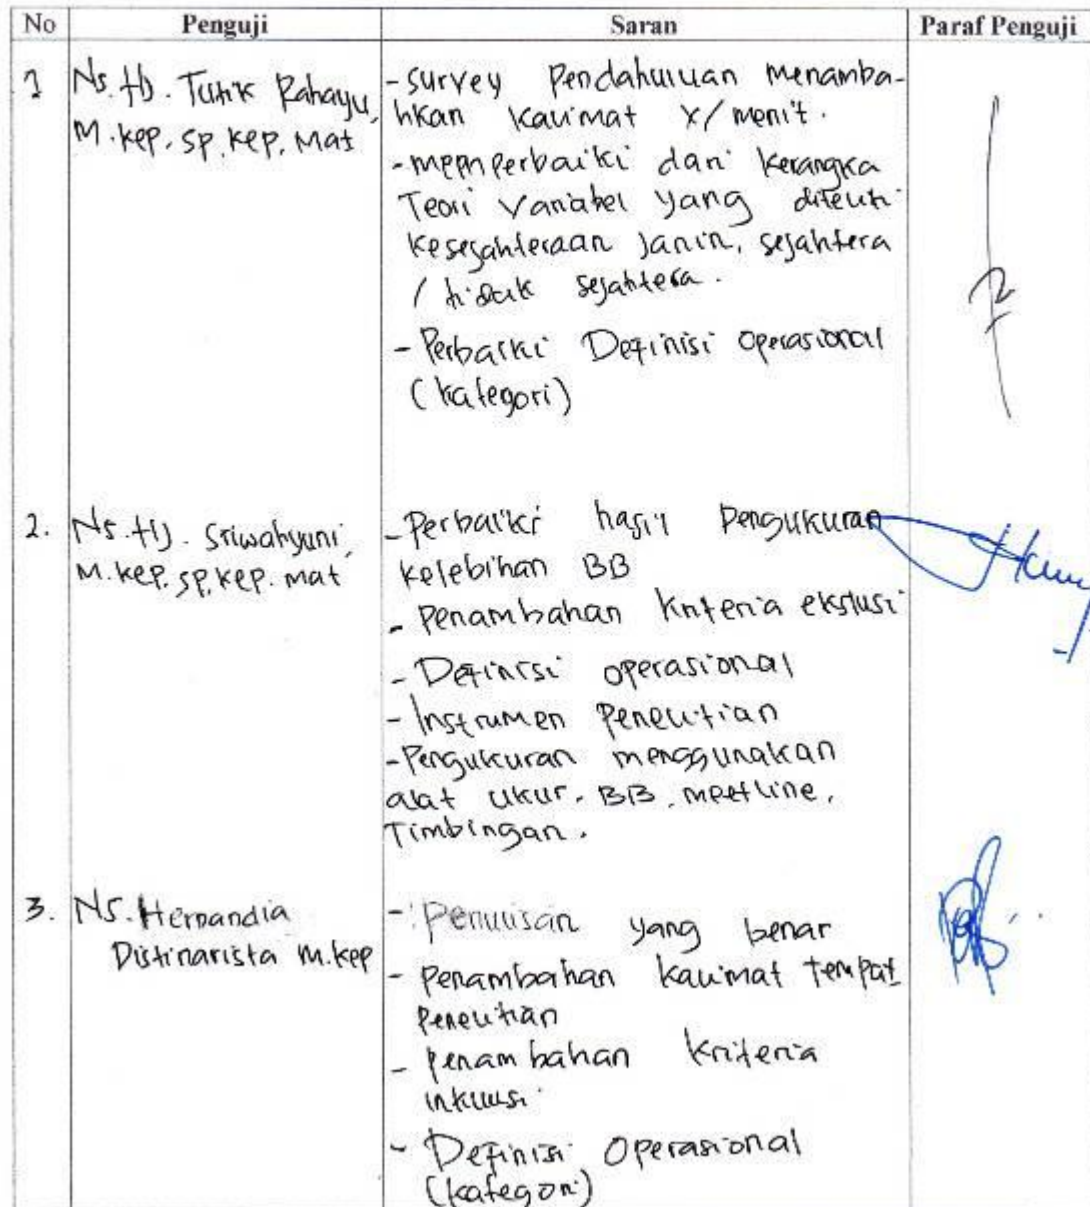 No Penguji Saran Paraf Penguji
1 Ns. Hj. Tutik Rahayu,
M.Kep. Sp. Kep. Mat
- Survey Pendahuluan menamba-
hkan kalimat x/menit.
- memperbaiki dari kerangka
Teori variabel yang diteliti
kesejahteraan janin, sejahtera
/ tidak sejahtera.
- Perbaiki Definisi operasional
(kategori)
2. Ns. Hj. Sriwahyuni,
M.kep. Sp. Kep. Mat
- Perbaiki hasil Pengukuran
kelebihan BB
- Penambahan kriteria ekslusi
- Definisi operasional
- Instrumen Penelitian
- Pengukuran menggunakan
alat ukur. BB. meetline.
Timbingan.
3. Ns. Hernandia
Distinarista M.Kep
- Penulisan yang benar
- Penambahan kalimat tempat
Penelitian
- Penambahan kriteria
inklusi
- Definisi Operasional
(kategori)